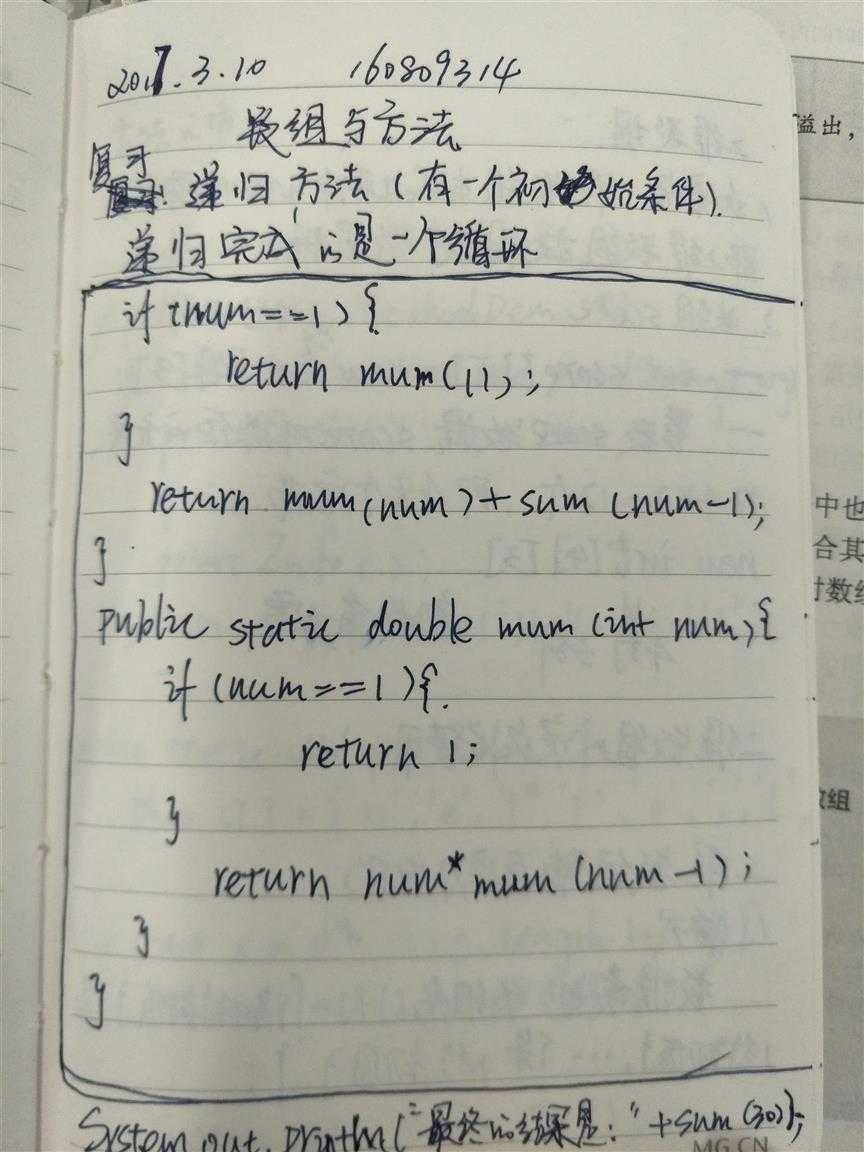 2017.3.10 160809314
数组与方法
复习
递归方法(有一个初始条件).
递归完成的是一个循环
if(num==1){
return mum(1);
}
return mum(num)+sum(num-1);
}
public static double mum(int num){
if(num==1){
return 1;
}
return num*mum(num-1);
}
}
System.out.println("最终的结果是:"+sum(30));
溢出,
中也
合其
数组
MG.CN